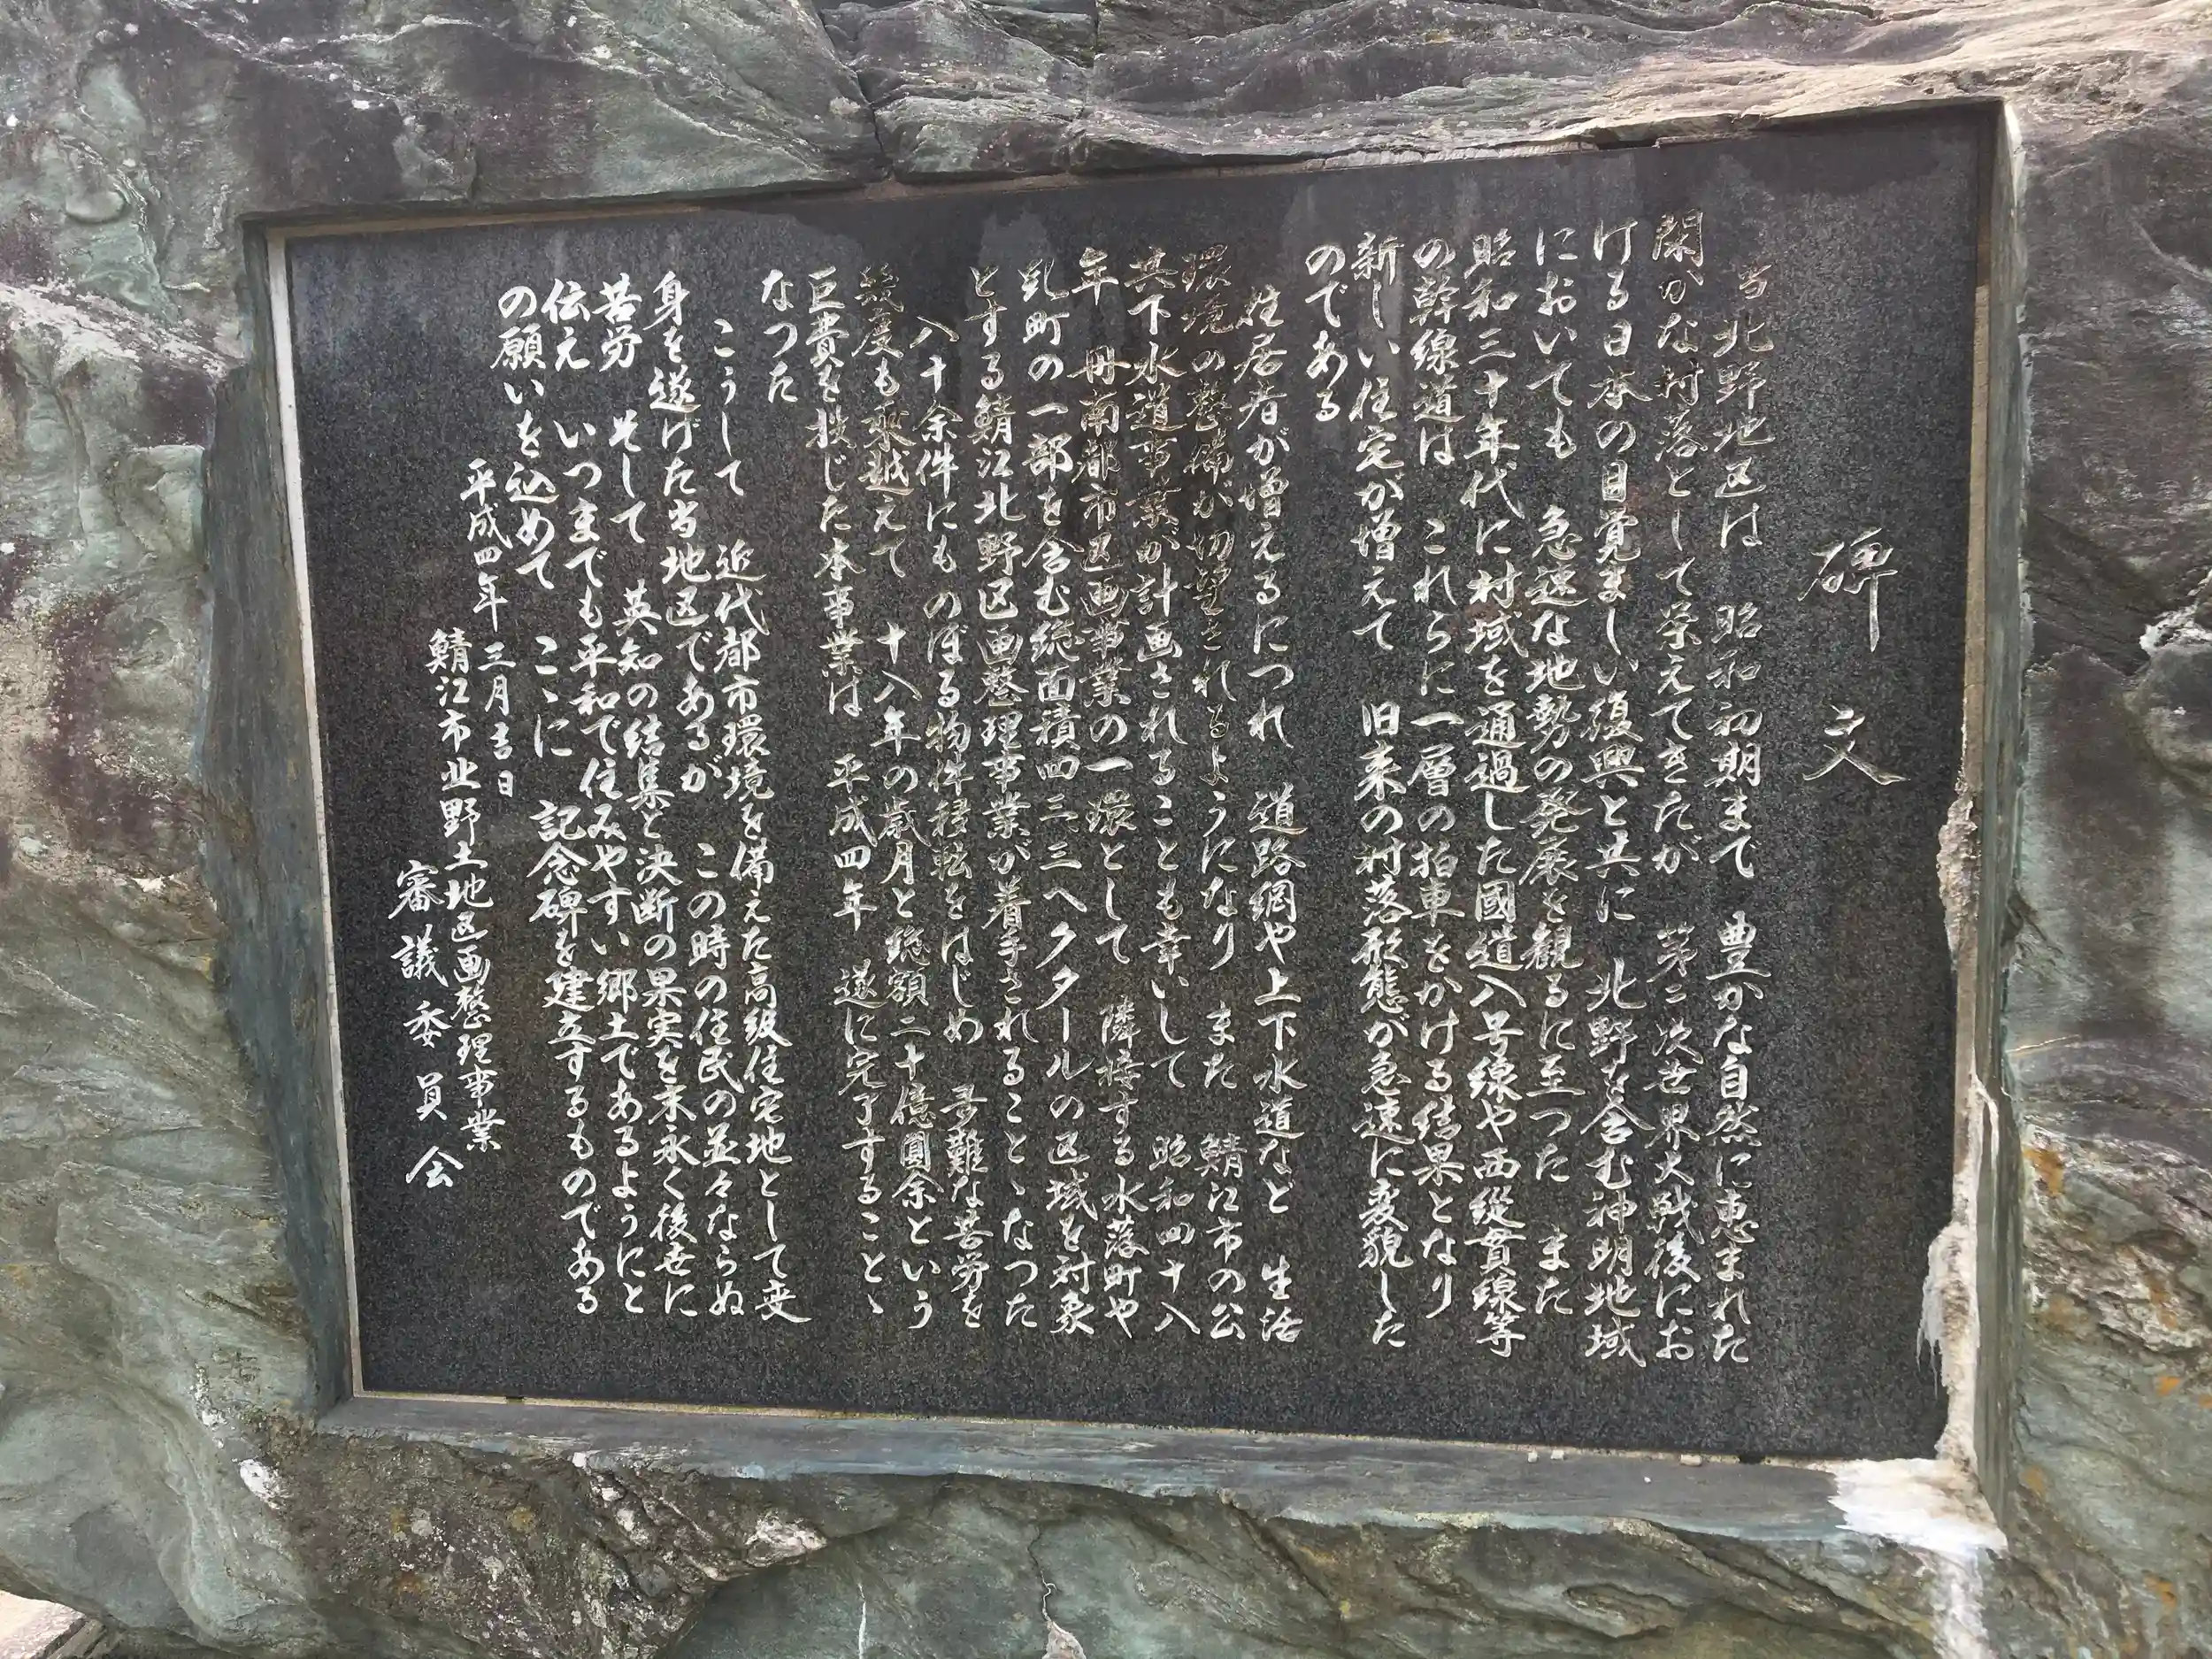 碑文
当北野地区は 昭和初期まで 豊かな自然に恵まれた
閑かな村落として栄えてきたが 第二次世界大戦後にお
ける日本の目覚ましい復興と共に 北野を含む神明地域
においても 急速な地勢の発展を観るに至つた また
昭和三十年代に村域を通過した國道八号線や西縦貫線等
の幹線道は これらに一層の拍車をかける結果となり
新しい住宅が増えて 旧来の村落形態が急速に変貌した
のである
住居者が増えるにつれ 道路網や上下水道など 生活
環境の整備が切望されるようになり また 鯖江市の公
共下水道事業が計画されることも幸いして 昭和四十八
年 丹南都市区画事業の一環として 隣接する水落町や
乩町の一部を含む総面積四三、三ヘクタールの区域を対象
とする鯖江北野区画整理事業が着手されること、なつた
八十余件にものぼる物件移転をはじめ 多難な苦労を
幾度も乗越えて 十八年の歳月と総額二十億圓余という
巨費を投じた本事業は 平成四年 遂に完了すること、
なつた
こうして 近代都市環境を備えた高級住宅地として変
身を遂げた当地区であるが この時の住民の並々ならぬ
苦労 そして 英知の結集と決断の果実を末永く後世に
伝え いつまでも平和で住みやすい郷土であるようにと
の願いを込めて こゝに 記念碑を建立するものである
平成四年 三月吉日
鯖江市北野土地区画整理事業
審議委員会